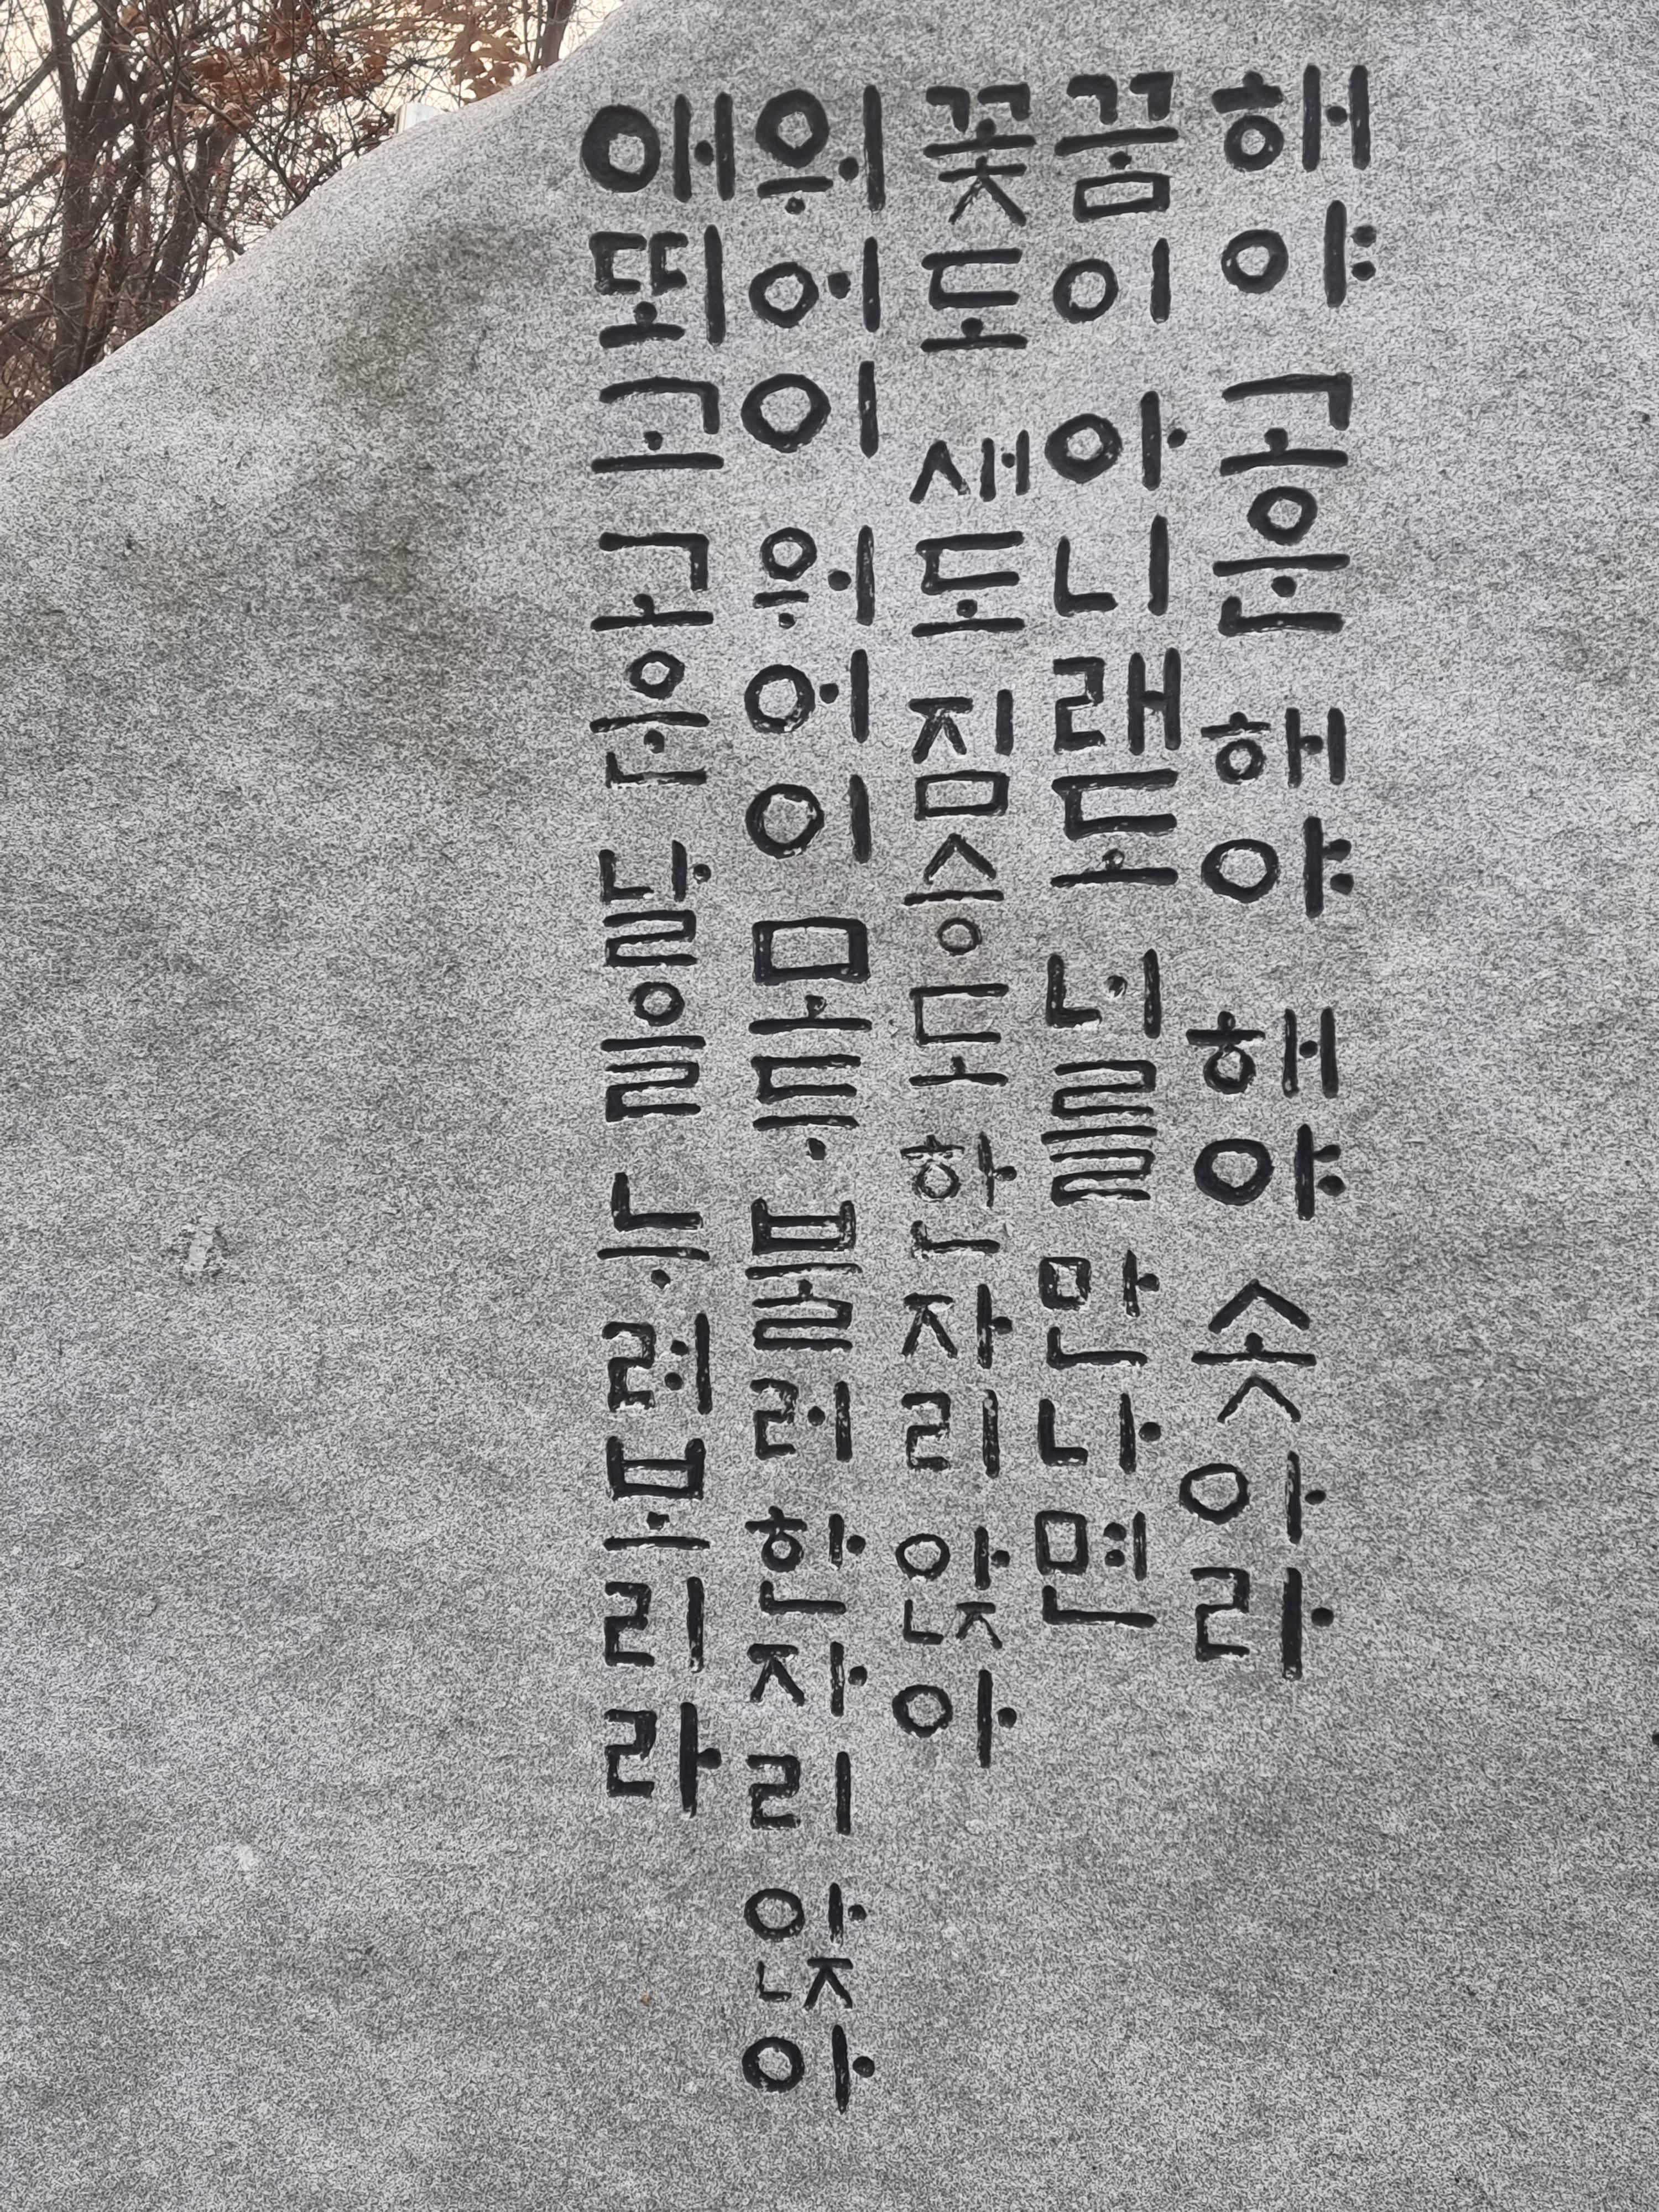 해야 고운 해야 해야 솟아라
꿈이 아니래도 너를 만나면
꽃도 새도 짐승도 한자리 앉아
워어이 워어이 모두 불러 한자리 앉아
애띄고 고운 날을 누려보리라